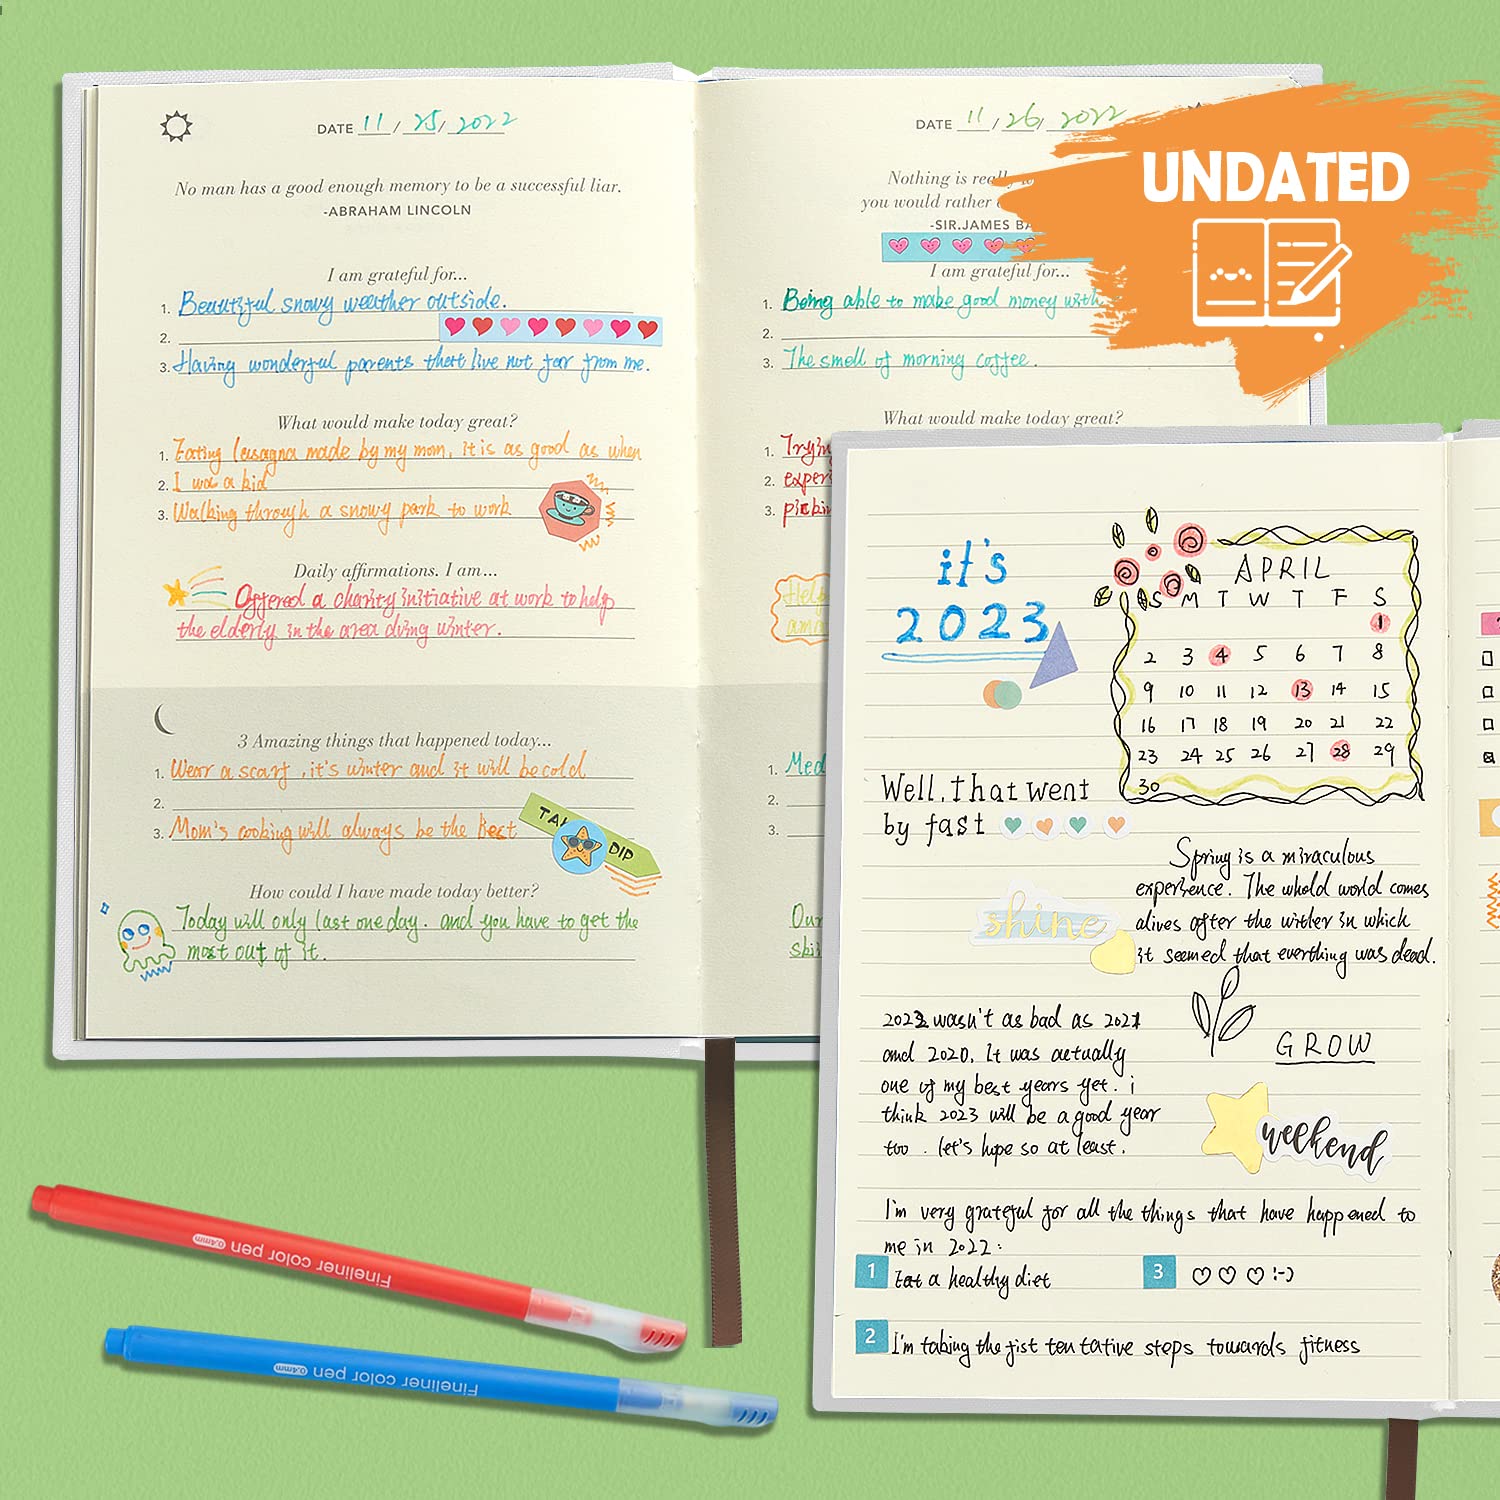 DATE 11 / 25 / 2022
No man has a good enough memory to be a successful liar.
-ABRAHAM LINCOLN
I am grateful for...
1. Beautiful snowy weather outside.
2.
3. Having wonderful parents that live not far from me.
What would make today great?
1. Eating lasagna made by my mom, it is as good as when
2. I was a kid
3. Walking through a snowy park to work
Daily affirmations. I am...
Offered a charity initiative at work to help
the elderly in the area ding winter.
3 Amazing things that happened today...
1. Wear a scarf, it's winter and it will be cold
2.
3. Mom's cooking will always be the best
DIP
How could I have made today better?
Today will only last one day. and you have to get the
most out of it.
DATE 11 / 26 / 2022
Nothing is
you would rather
-SIR.JAMES
I am grateful for...
1. Being able to make good money with
2.
3. The smell of morning coffee.
What would make today great?
1.
2.
3.
1.
2.
3.
UNDATED
it's
2023
APRIL
S M T W T F S
1
2 3 4 5 6 7 8
9 10 11 12 13 14 15
16 17 18 19 20 21 22
23 24 25 26 27 28 29
30
Well, That went
by fast
Spring is a miraculous
experience. The whold world comes
alives after the witler in which
it seemed that everthing was dead.
shine
2022 wasn't as bad as 2021
and 2020. It was actually
one of my best years yet. i
think 2023 will be a good year
too. let's hope so at least.
GROW
weekend
I'm very grateful for all the things that have happened to
me in 2022:
1 Eat a healthy diet
3 ♡ ♡ ♡ :-)
2 I'm taking the fist ten tative steps towards fitness
Fineliner color pen 0.4mm
Fineliner color pen 0.4mm